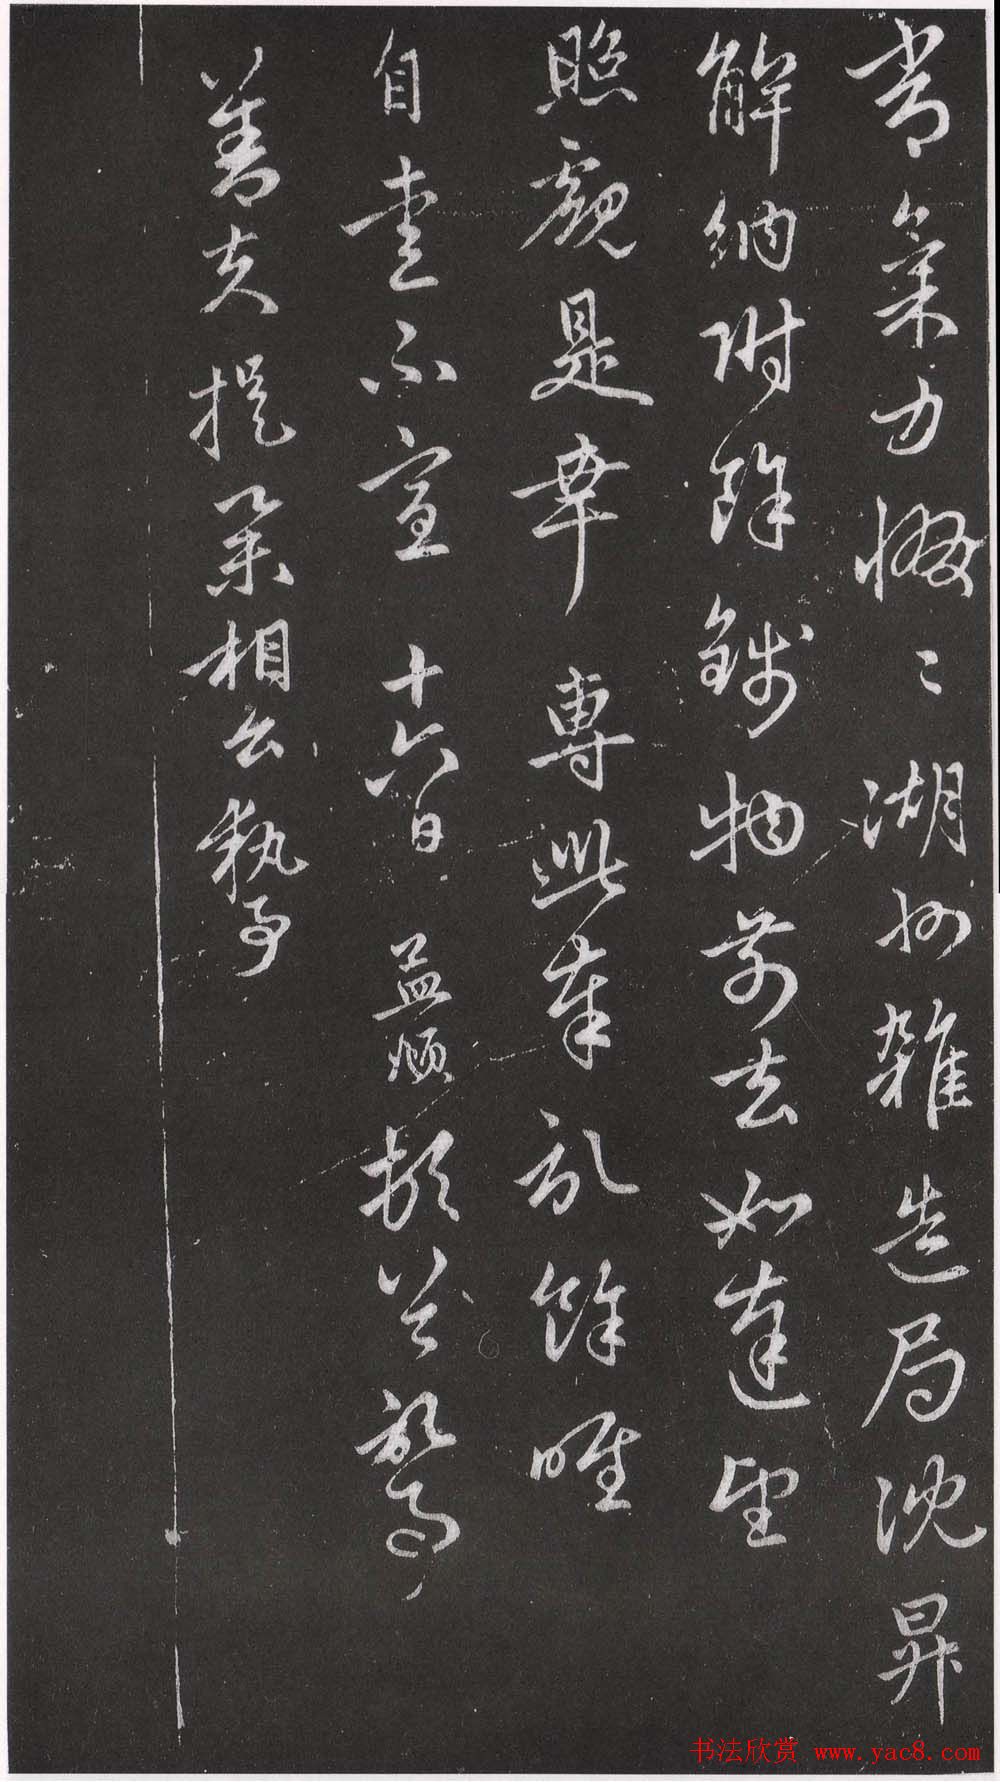 書氣力惙〻湖州雜造局沈昇
解納附餘錢物前去如達望
照覷是幸專此奉 餘唯
自重不宣十六日益 頓首就
善夫提舉相公執事
书法欣赏 www.yac8.com